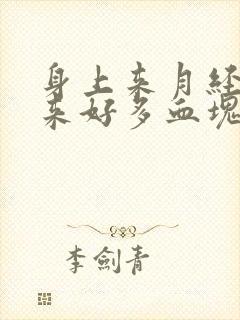 身上来月经
来好多血塊
李劍青